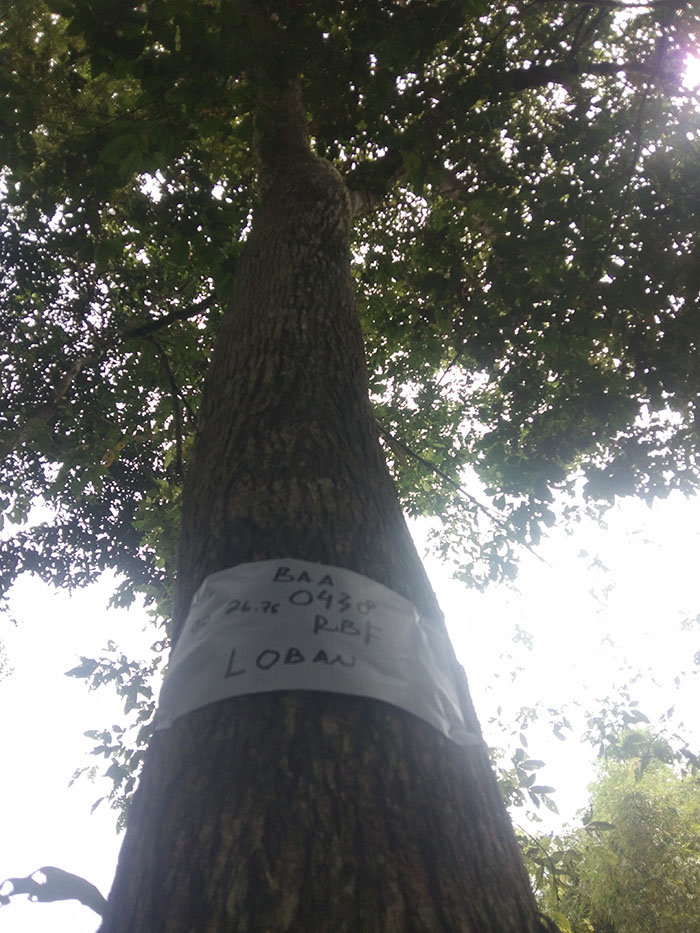 BAA
26.76 0438
RBF
LOBAN